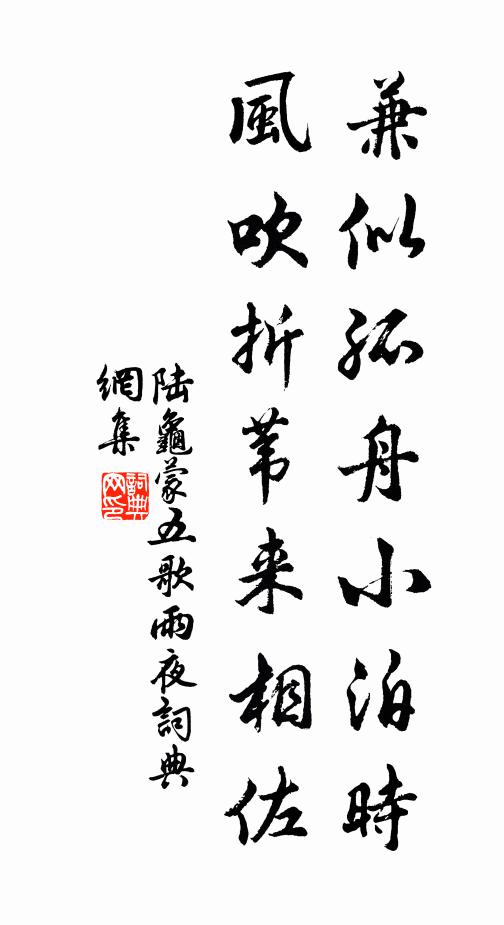 兼似孤舟小泊時
風吹折葦来相佐
陆龜蒙五歌雨夜詞典
網集
詞典
网印